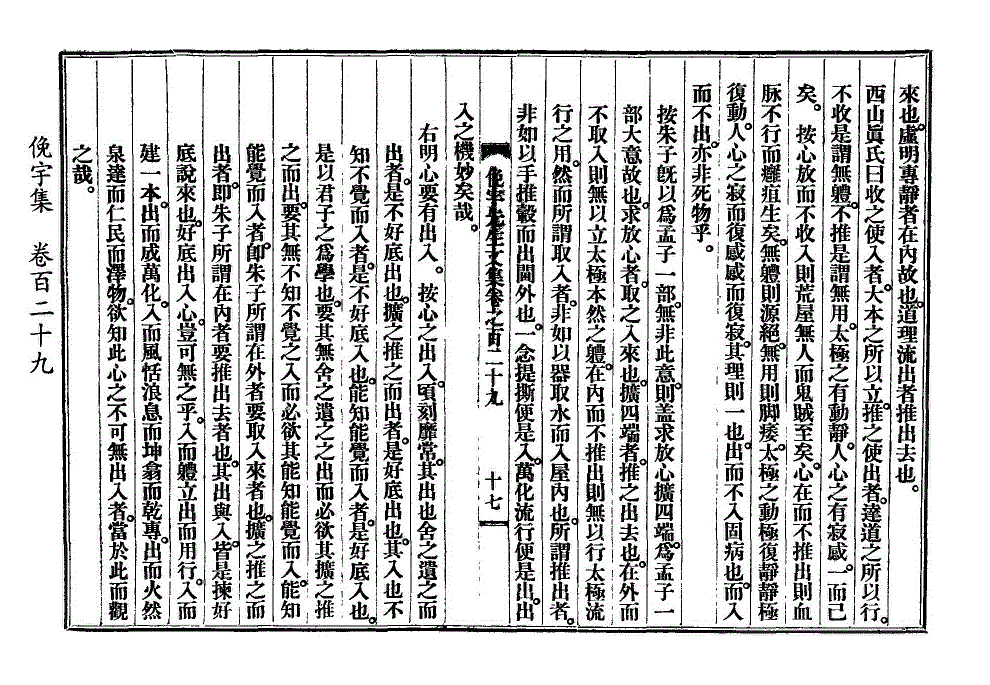 來也。虛明專靜者在內故也。道理流出者推出去也。
西山眞氏曰收之使入者。大本之所以立。推之使出者。達道之所以行。
不收是謂無軆。不推是謂無用。太極之有動靜。人心之有寂感。一而已
矣。 按心放而不收入則荒屋無人而鬼賊至矣。心在而不推出則血
脉不行而癰疽生矣。無軆則源絕。無用則脚痿。太極之動極復靜靜極
復動。人心之寂而復感感而復寂。其理則一也。出而不入固病也。而入
而不出。亦非死物乎。
按朱子旣以爲孟子一部。無非此意。則盖求放心擴四端。爲孟子一
部大意故也。求放心者。取之入來也。擴四端者。推之出去也。在外而
不取入則無以立太極本然之軆。在內而不推出則無以行太極流
行之用。然而所謂取入者。非如以器取水而入屋內也。所謂推出者。
非如以手推轂而出閫外也。一念提撕便是入。萬化流行便是出。出
俛宇先生文集卷之百二十九 十七
入之機妙矣哉。
右明心要有出入。 按心之出入。頃刻靡常。其出也舍之遺之而
出者。是不好底出也。擴之推之而出者。是好底出也。其入也不
知不覺而入者。是不好底入也。能知能覺而入者。是好底入也。
是以君子之爲學也。要其無舍之遺之之出而必欲其擴之推
之而出。要其無不知不覺之入而必欲其能知能覺而入。能知
能覺而入者。卽朱子所謂在外者要取入來者也。擴之推之而
出者。卽朱子所謂在內者要推出去者也。其出與入。皆是揀好
底說來也。好底出入。心豈可無之乎。入而軆立出而用行。入而
建一本。出而成萬化。入而風恬浪息而坤翕而乾專。出而火然
泉達而仁民而澤物。欲知此心之不可無出入者。當於此而觀
之哉。
俛宇集 卷百二十九